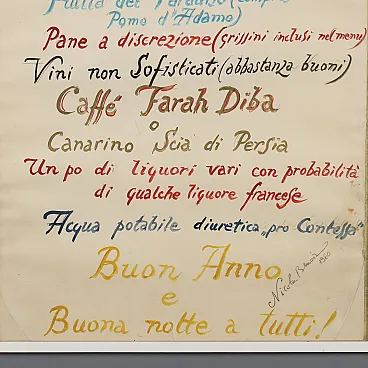 Frutta del Paradiso (compreso
Pome d'Adamo)
Pane a discrezione (grissini inclusi nel menu)
Vini non Sofisticati (abbastanza buoni)
Caffé Farah Diba
o
Canarino Scià di Persia
Un po di liquori vari con probabilità
di qualche liquore francese
Acqua potabile diuretica „pro Contessa"
Buon Anno
e
Buona notte a tutti!
Nicola 1960